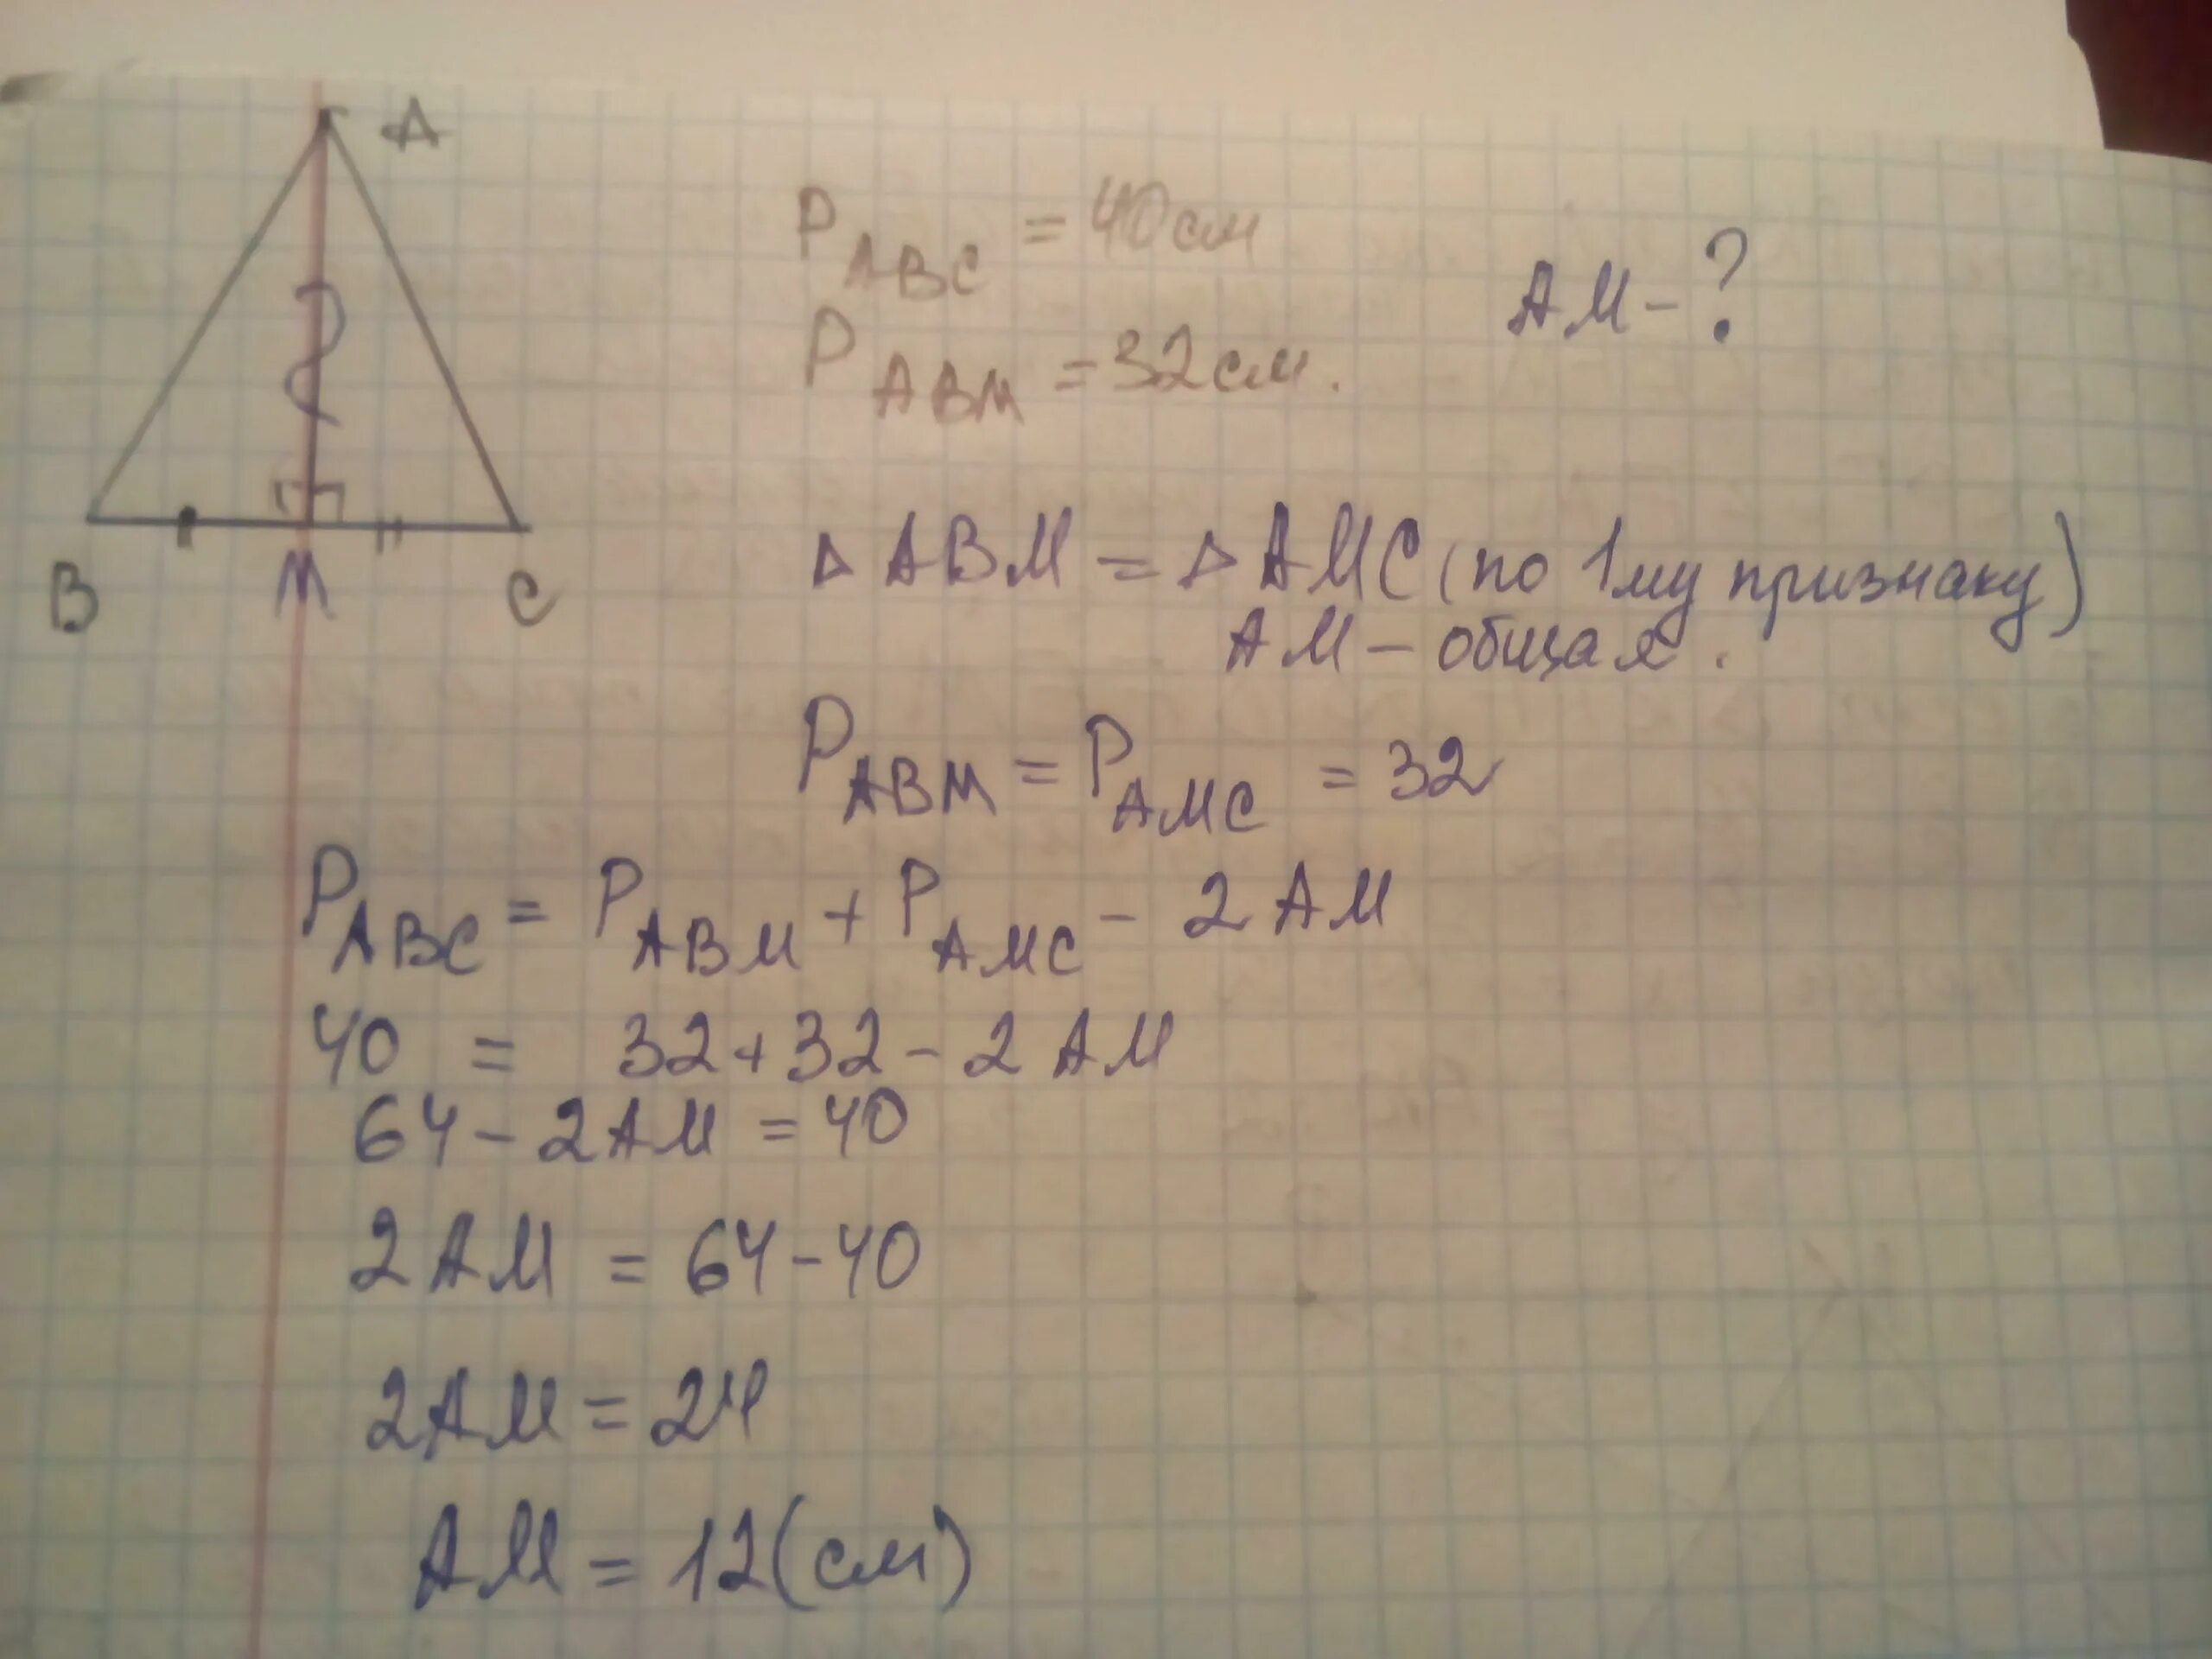 A
P ABC = 40см
P ABM = 32см.
AM - ?
B M C
△ ABM = △ AMC (по 1му признаку)
AM - общая.
P ABM = P AMC = 32
P ABC = P ABM + P AMC - 2 AM
40 = 32 + 32 - 2 AM
64 - 2AM = 40
2 AM = 64 - 40
2AM = 24
AM = 12 (см)